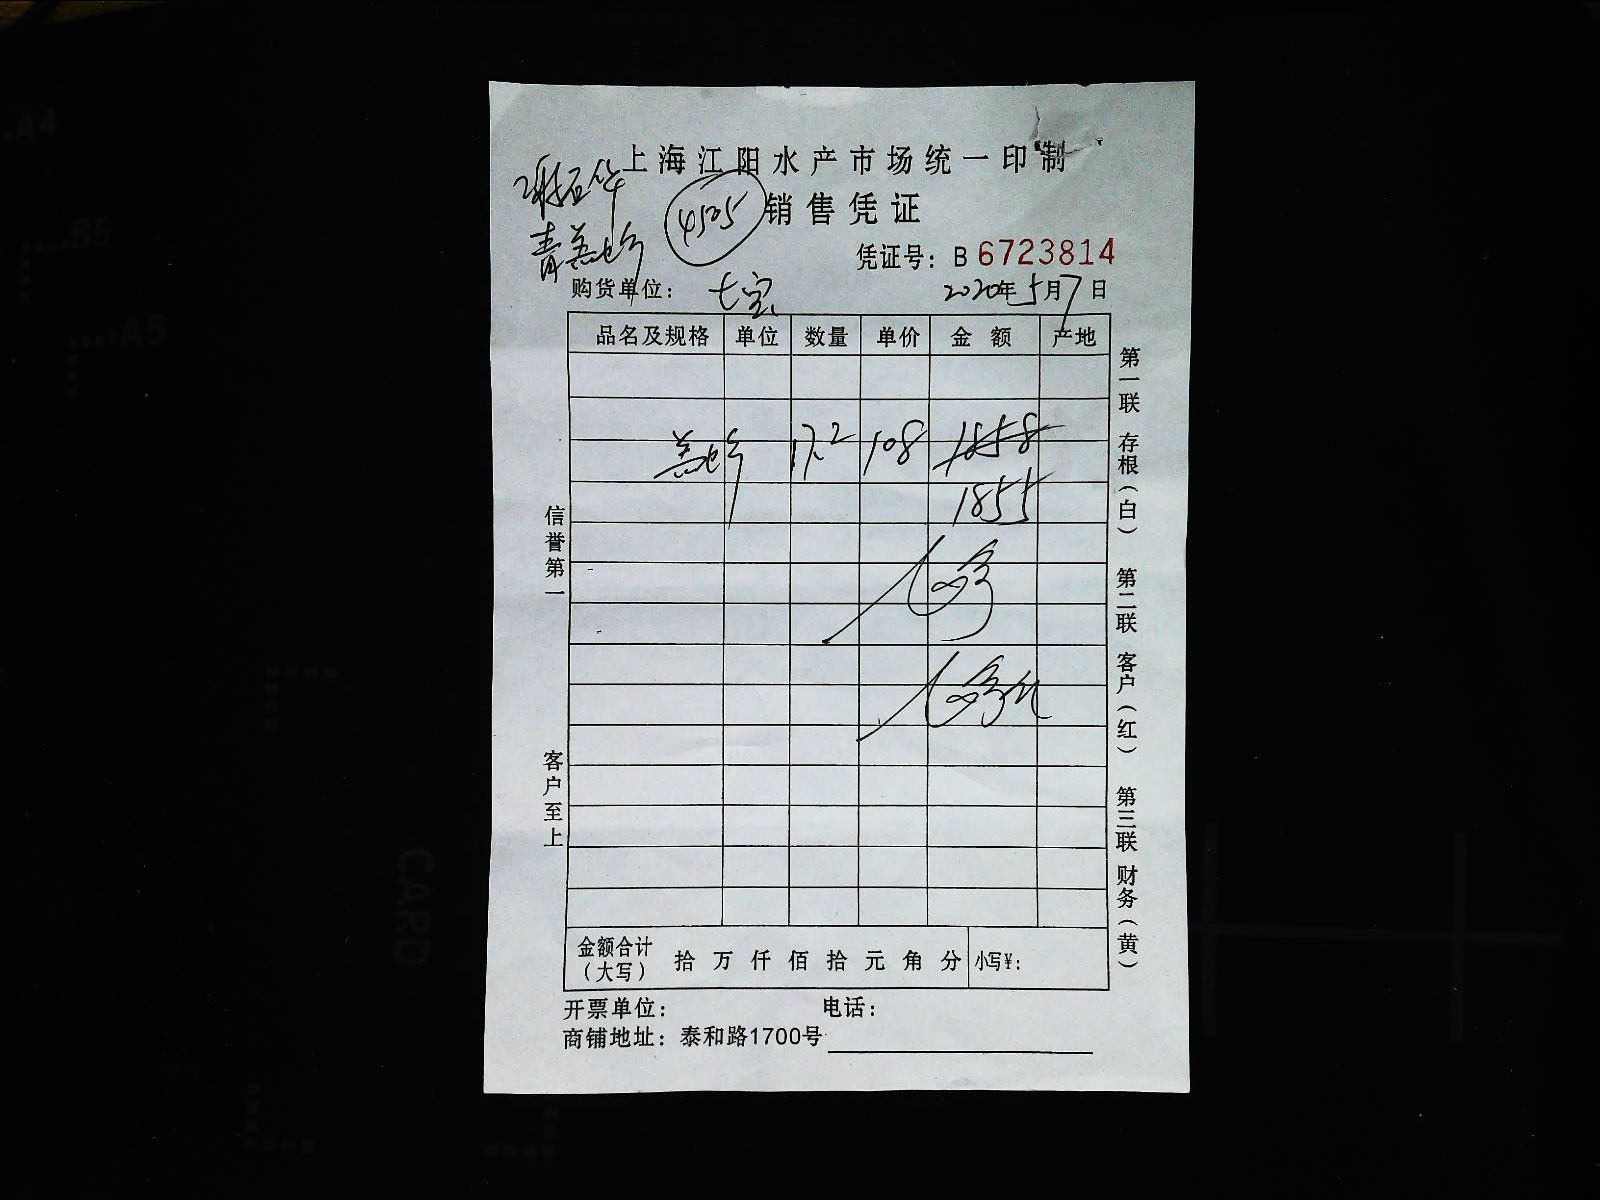 上海江阳水产市场统一印制
4525
销售凭证
凭证号：B 6723814
购货单位：七宝 2020年5月7日
品名及规格 单位 数量 单价 金额 产地
17.2 108 1858
1855
金额合计（大写） 拾万仟佰拾元角分 小写¥：
开票单位： 电话：
商铺地址：泰和路1700号
信誉第一 客户至上
第一联 存根（白） 第二联 客户（红） 第三联 财务（黄）